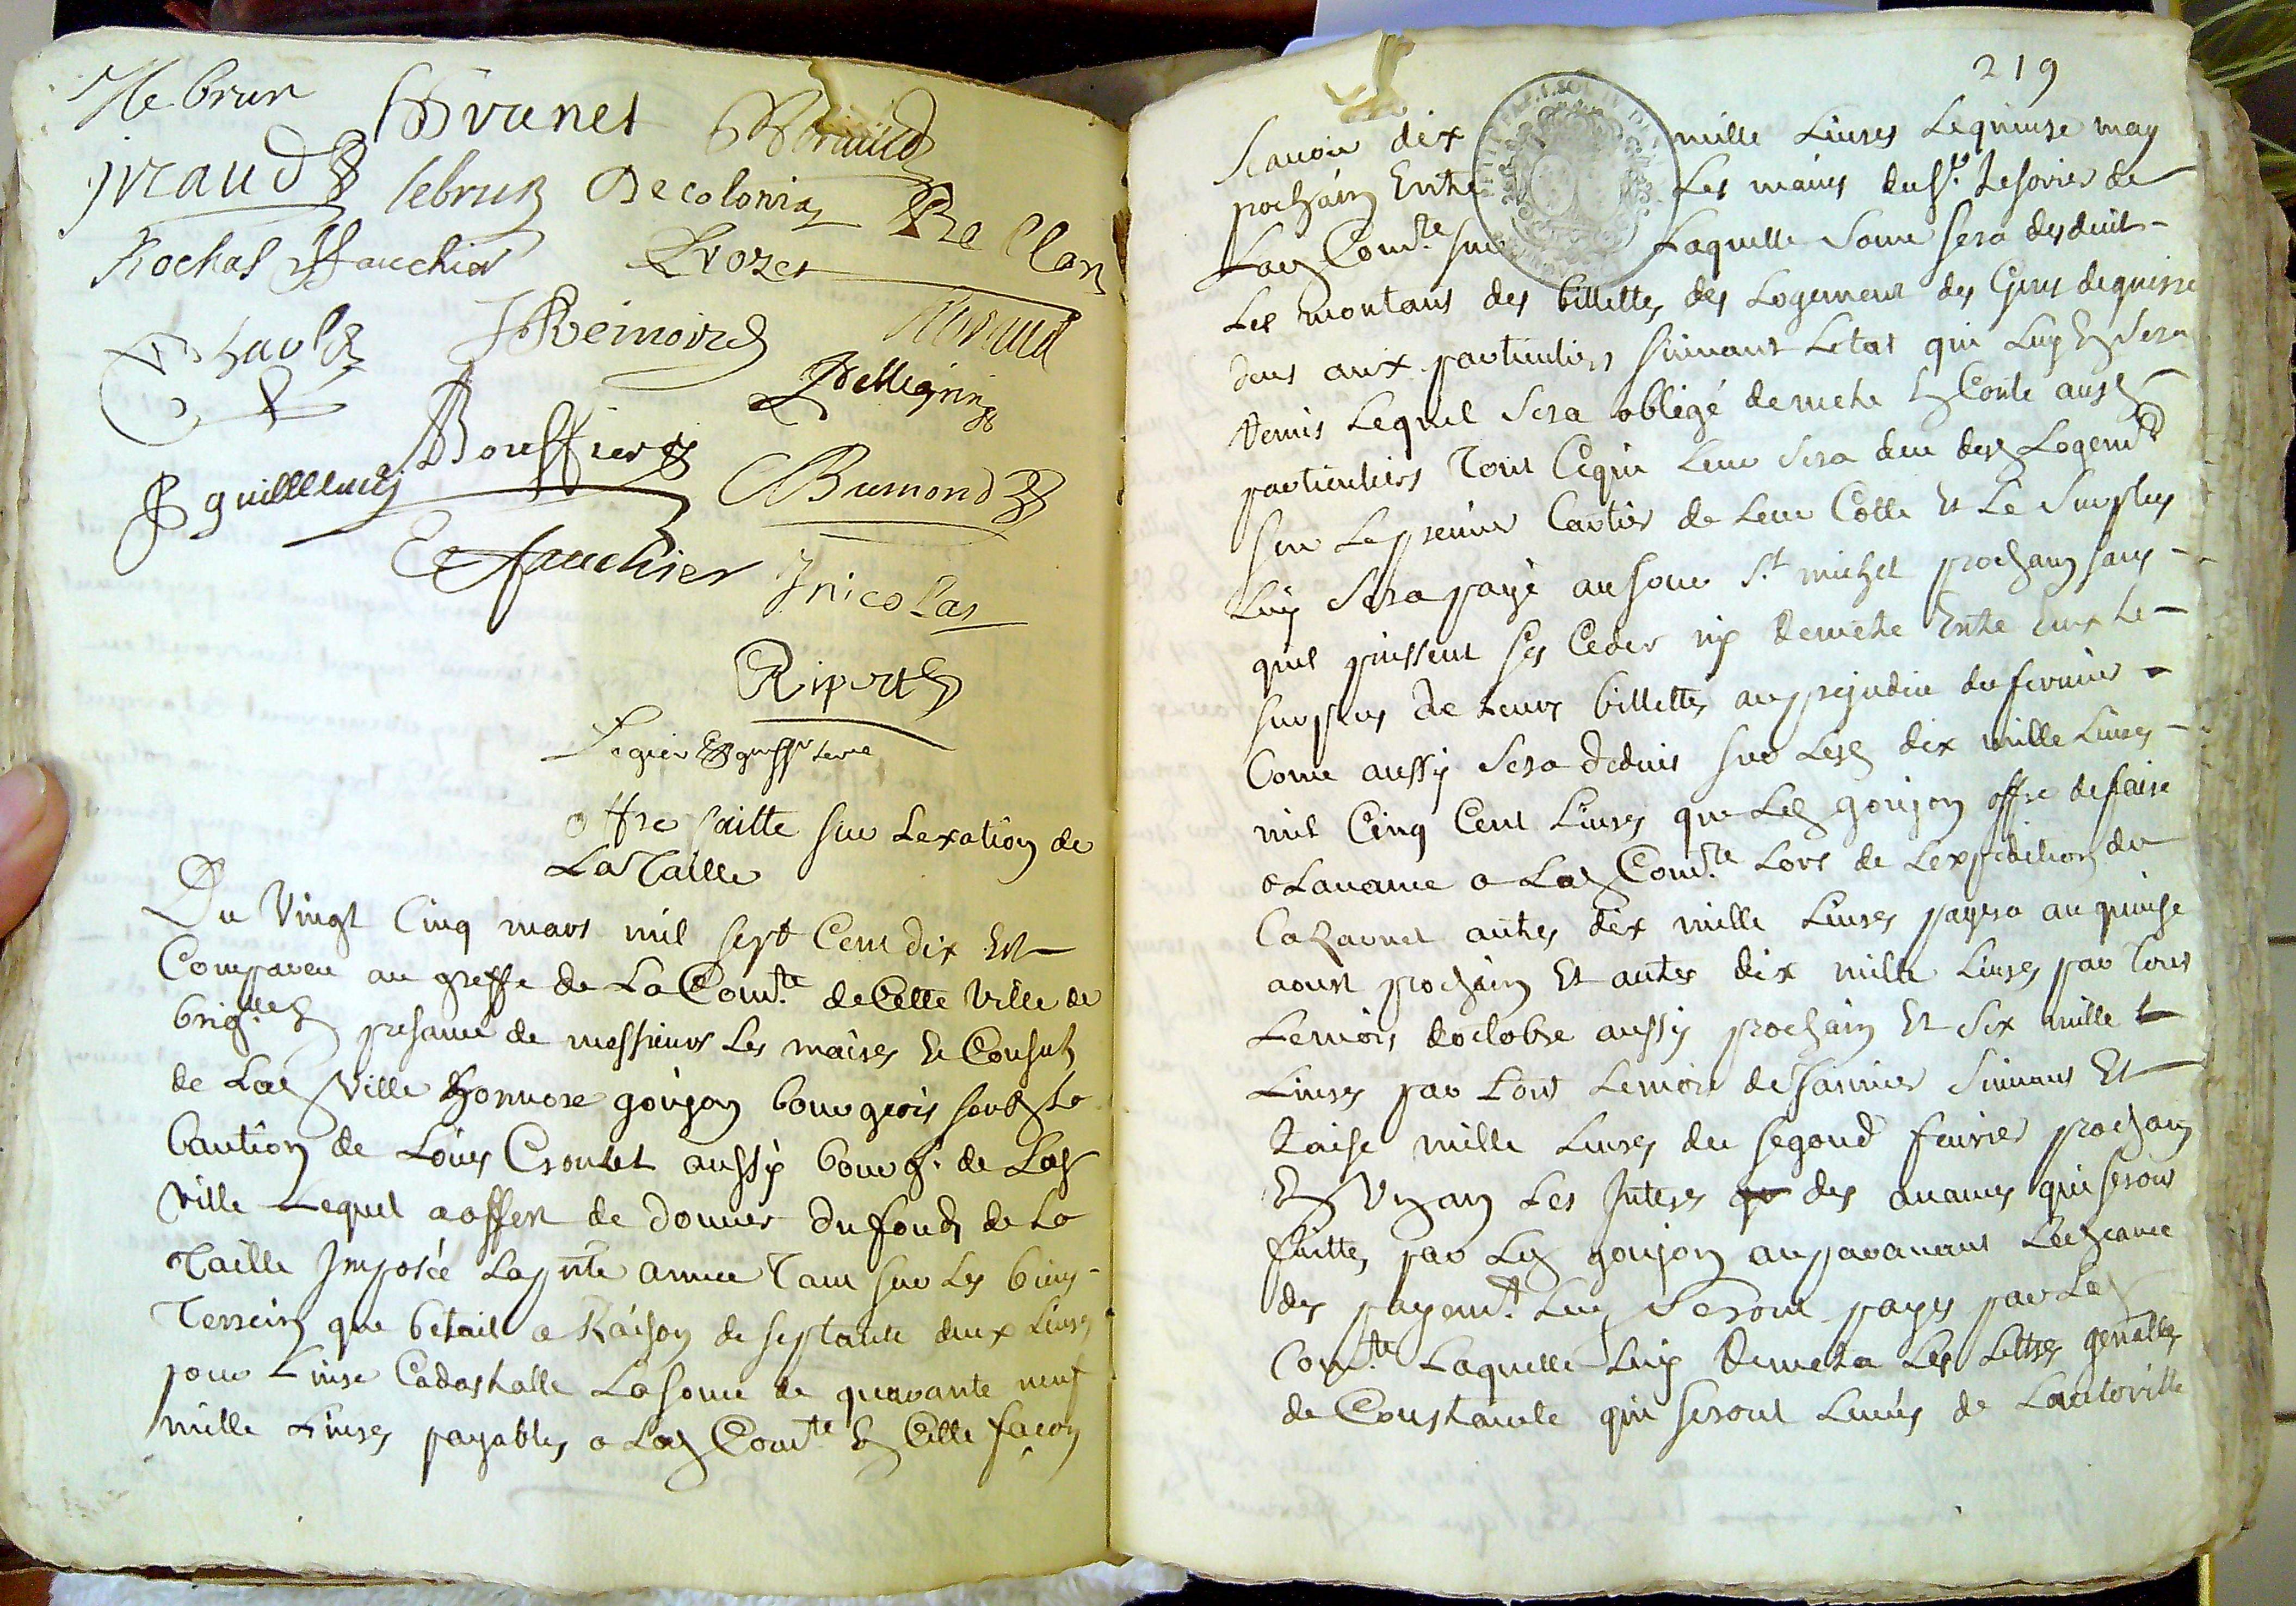 He brun Brunet
jiraud lebrun Decolonia Re Clan
Rochas Fauchier Lrozet
Reinoird
Pellegrin
Bouffier
guilllemin CBrumond
E fauchier
Jnicolas
Ripert
Segier greffr
offre faitte sur Lexation de
La Taille
Du Vingt Cinq mars mil sept Cent dix Est
Compareu au greffe de La Comte. de Cette Ville de
brig.lles presance de messieurs Les maires Et Consuls
de Lad Ville honnore goujon bourgeois soubs La
Caution de Louis Croutet aussy bourg. de Lad
Ville Lequel a offert de donner du fonds de La
Taille Jmposée La pnte annee Tant sur Les biens
Terrein que betail a Raison de septante deux Livres
pour Livre Cadastralle La some de quarante neuf
mille Livres payables a Lad Comte En Cette facon
219
Scavoir dix mille Livres Lequinse may
prochain Entre Les mains du Sr. Tesorier de
Lad Comte. sur Laquelle some sera desduit
Les montans des billettes des Logement des Gens de guerre
deus aux particuliers suivant Letat qui Luy En sera
Remis Lequel sera obligé de mettre En Conte ausd
particuliers Tout Cequi Leur sera deu desd Logemts
sur Le premier Cartier de Leur Cotte Et Le surplus
Luy sera payé au jour St. michel prochain sans
quil puissent ses Ceder ny Remettre Entre Eux Le
surplus de Leurs billettes au prejudice du fermier
Come aussy sera deduit sur Lesd dix mille Livres
mil Cinq Cent Livres que Led goujon offre de faire
a Lavance a Lad Comte. Lors de Lexpedition du
Cazarnet autres dix mille Livres payera au quinse
aoust prochain Et autres dix mille Livres par Tout
Lemois doctobre aussy prochain Et six mille
Livres par Tout Lemois de Janvier suivant Et
Traise mille Livres du segond fevrier prochain
Les Jnteres des avances qui seront
faittes par Led goujon auparavant Lechance
des payemt. Luy seront payes par La
Comte Laquelle Luy Remetra Les Lettres
de Constrainte qui seront Levées de Lautoritte